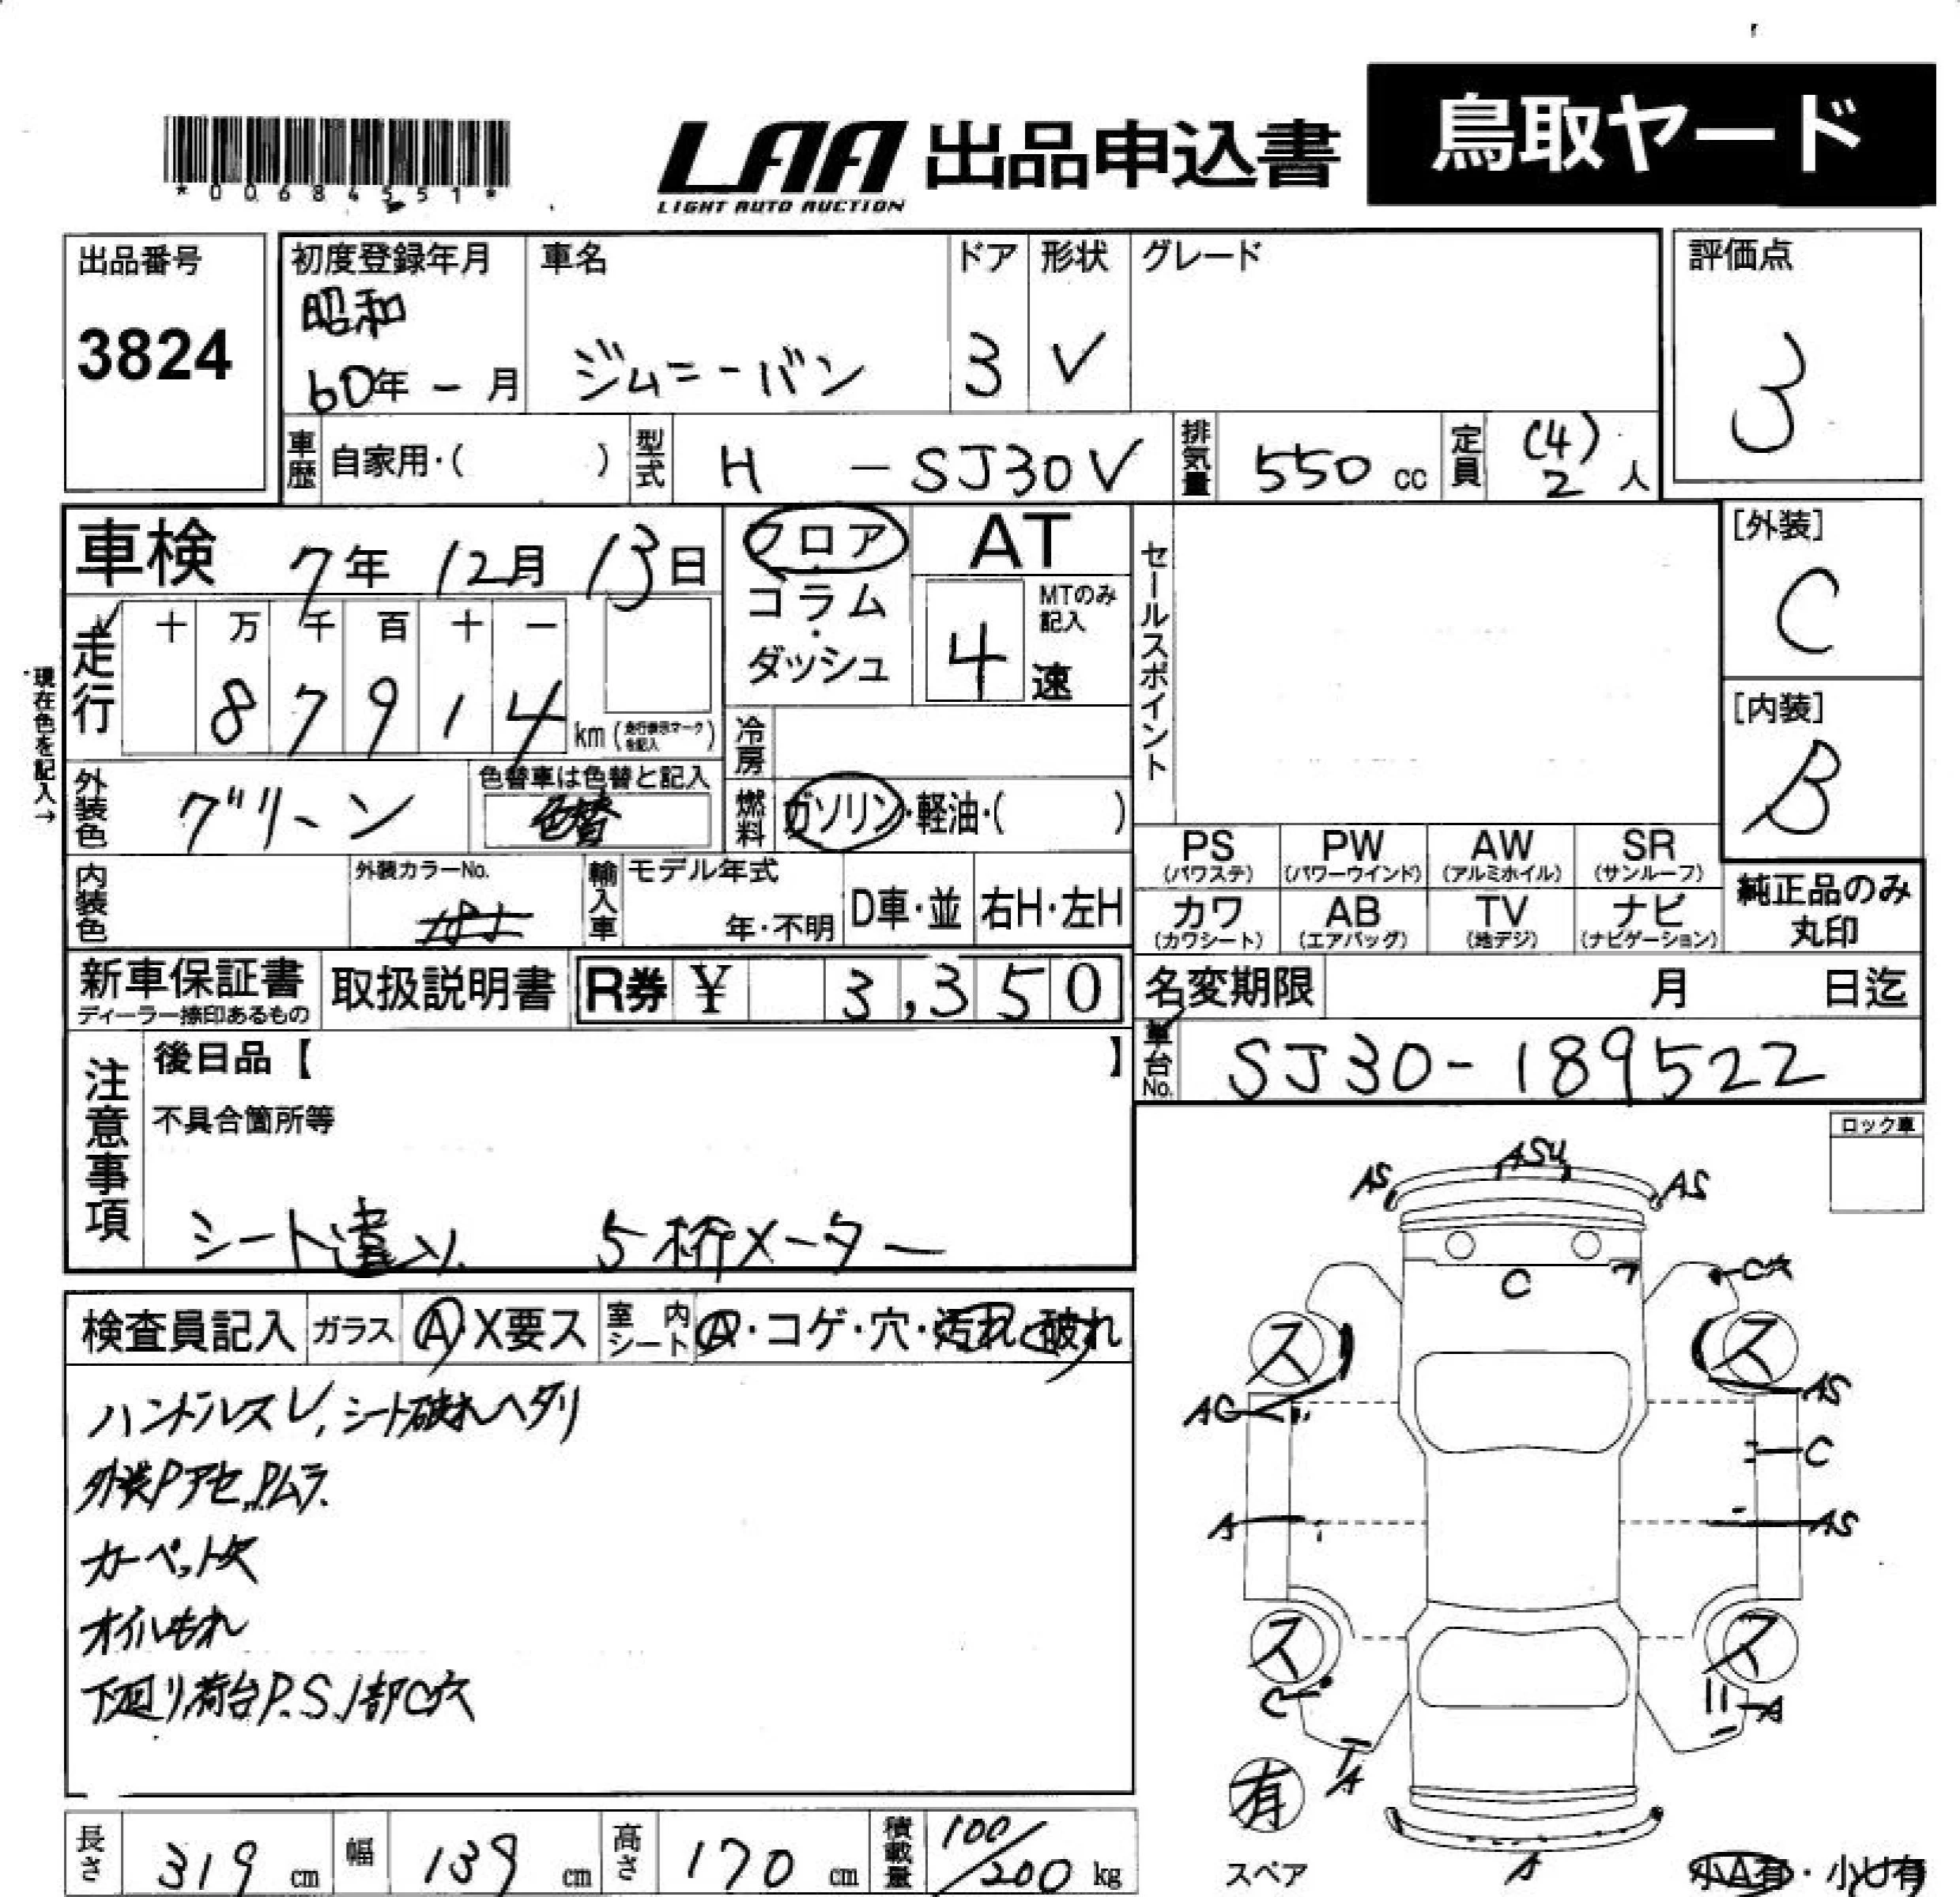 *00684551*
LAA 出品申込書 鳥取ヤード
LIGHT AUTO AUCTION
出品番号 初度登録年月 車名 ドア 形状 グレード 評価点
3824 昭和
60年 - 月 ジムニーバン 3 V 3
車歴 自家用・( ) 型式 H -SJ30V 排気量 550 cc 定員 (4) 2 人
車検 7年 12月 13日 フロア AT セールスポイント [外装]
コラム・ダッシュ 4 速 MTのみ記入 C
現在色を記入→
走行 十 万 千 百 十 一
8 7 9 1 4 km (走行表示マークを記入) [内装]
冷房 B
外装色 グリーン 色替車は色替と記入 色替 燃料 ガソリン・軽油・( )
PS PW AW SR
(パワステ) (パワーウインド) (アルミホイル) (サンルーフ)
内装色 外装カラーNo. 輸入車 モデル年式 年・不明 D車・並 右H・左H
カワ AB TV ナビ 純正品のみ
(カワシート) (エアバッグ) (地デジ) (ナビゲーション) 丸印
新車保証書 取扱説明書 R券 ¥ 3,350 名変期限 月 日迄
ディーラー捺印あるもの
注意事項 後日品【 】 車台No. SJ30-189522
不具合箇所等 ロック車
シート 5桁メーター
検査員記入 ガラス A X要ス 室内シート A・コゲ・穴・汚れ・破れ
ハンドルスレ,シート破れヘタリ
外装Pアセ,Pムラ.
カーペット欠
オイルもれ
下廻り荷台P.S.1部C穴
AS ASU AS
C
ス ス
AC AS
C
A AS
ス ス
C A
有 A
A
スペア 小A有・小U有
長さ 319 cm 幅 139 cm 高さ 170 cm 積載量 100/200 kg